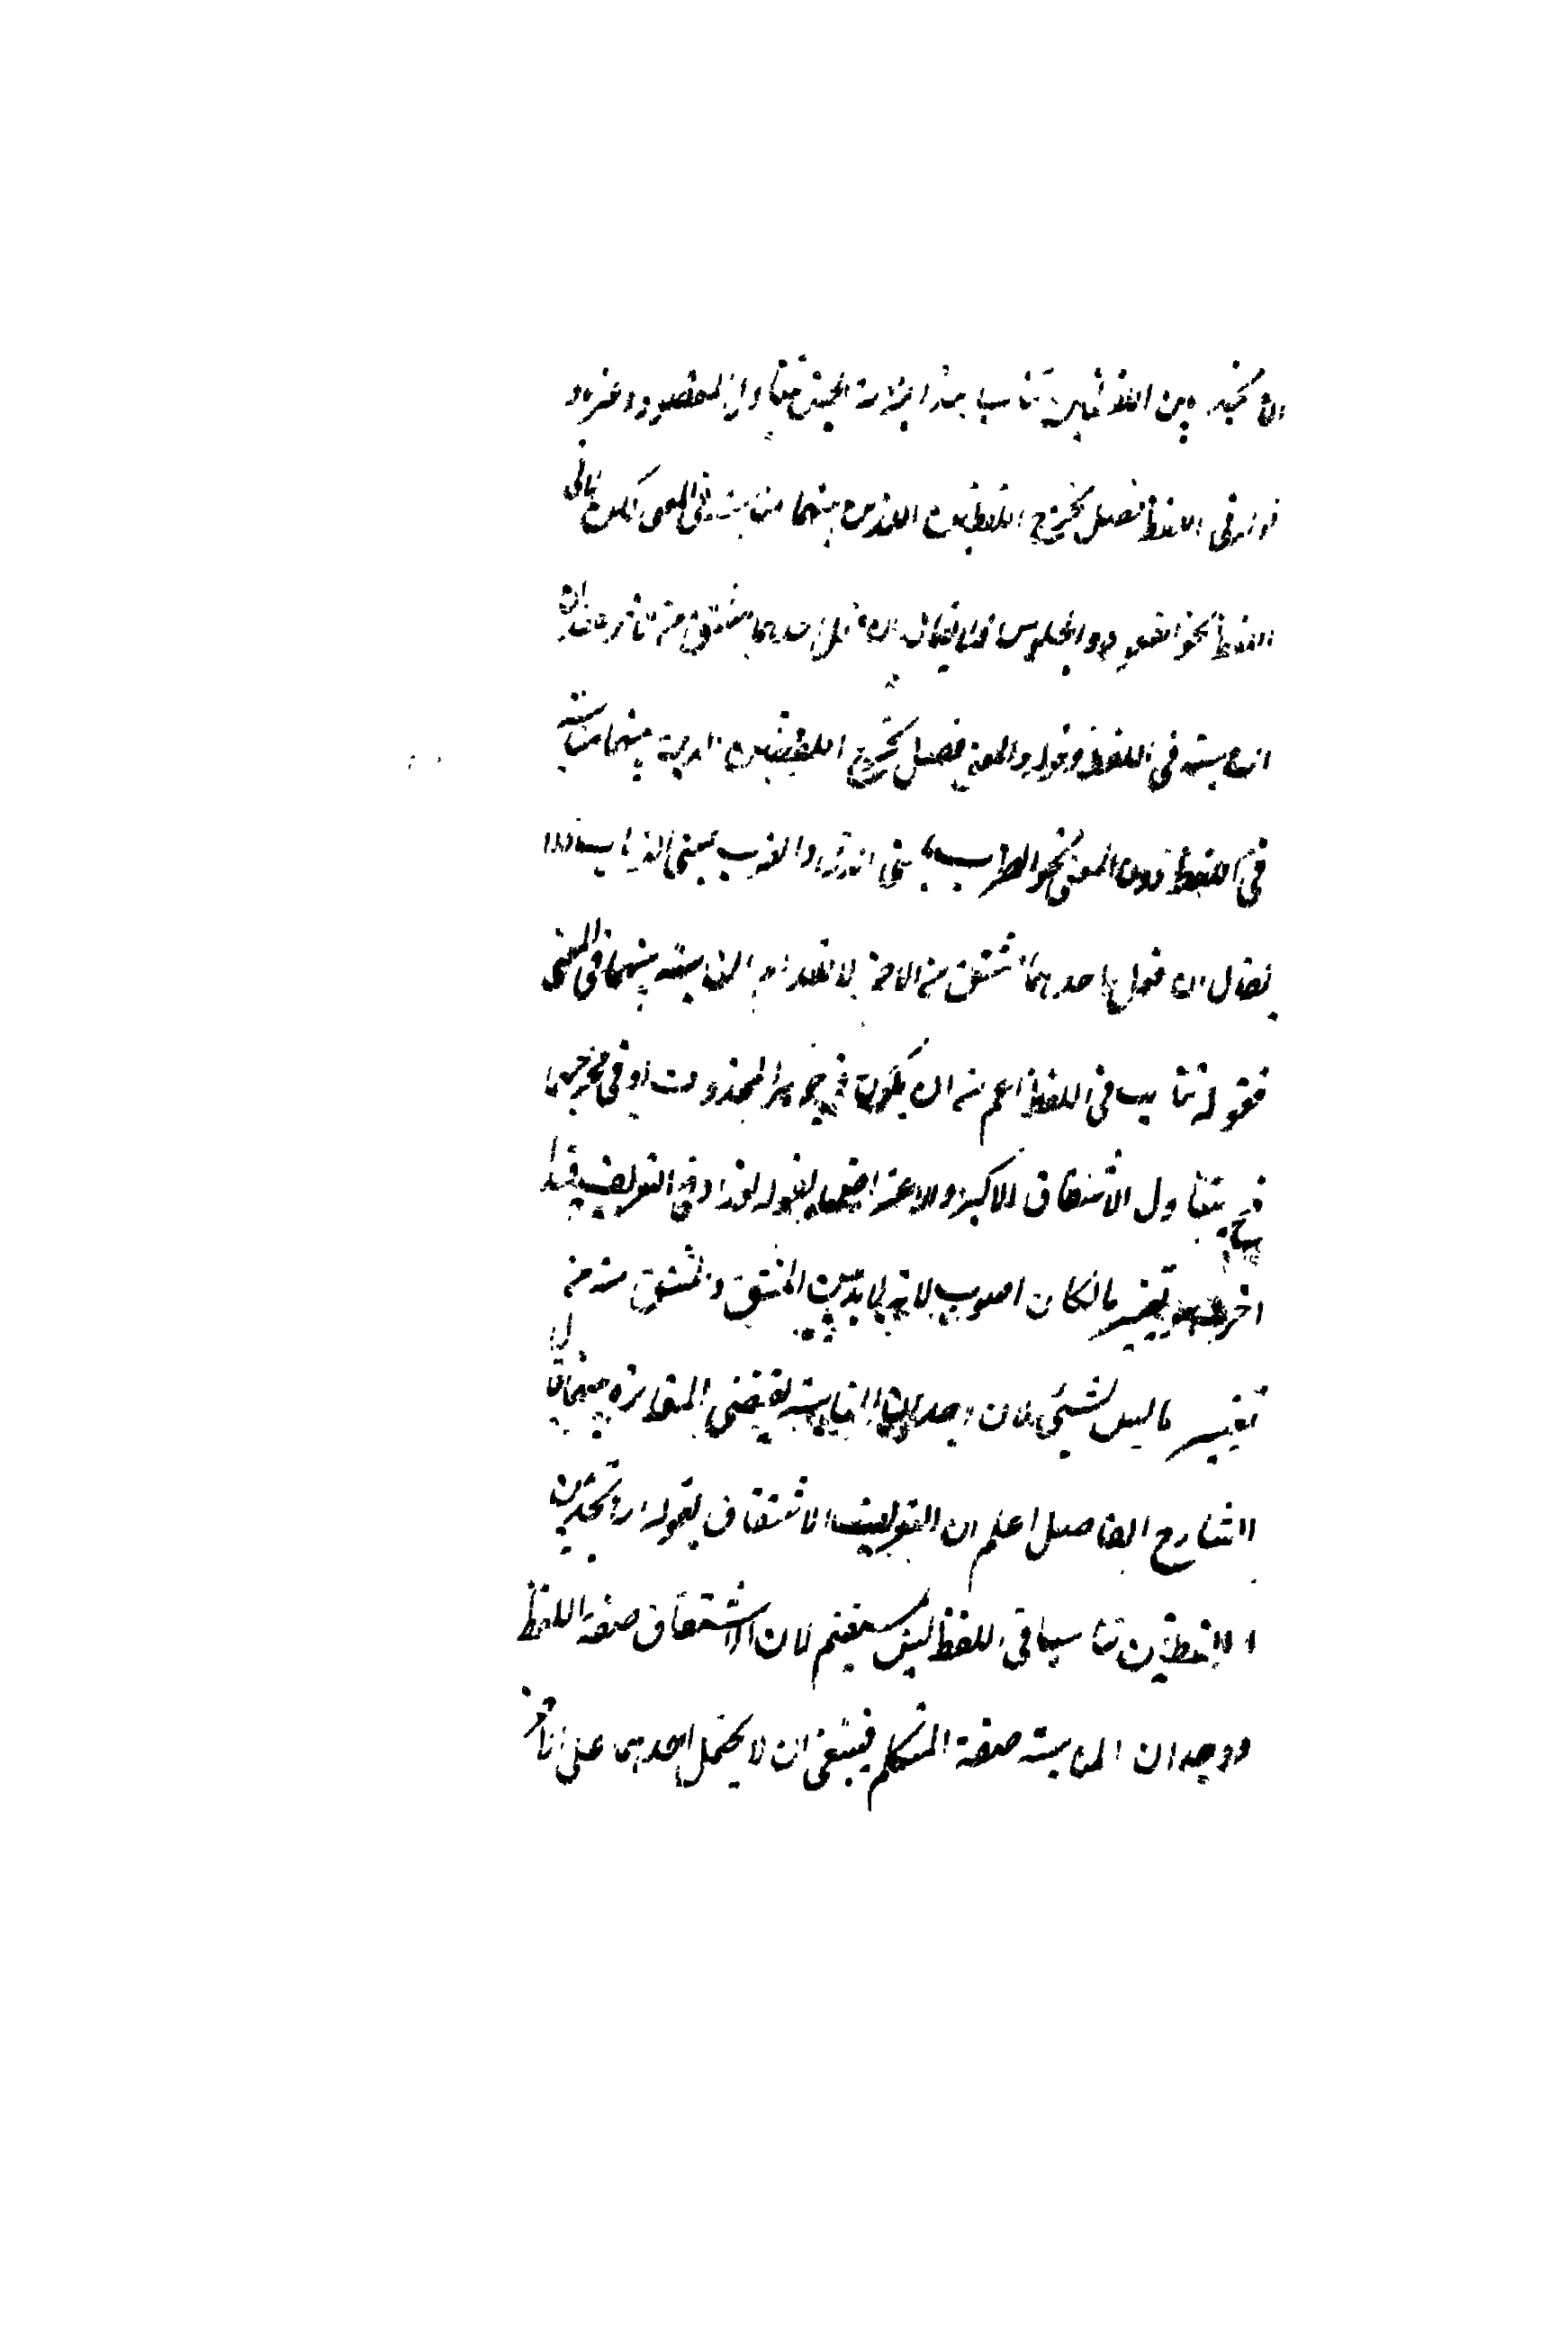 ان تجد بين اللفظين تناسبا هذا بمنزلة الجنس يتناول المقصود وغيره و
قوله في اللفظ فصل يخرج اللفظين اللذين بينهما مناسبة في المعنى لكن لا في
اللفظ نحو القعود والجلوس فلا يقال ان احدهما مشتق من الآخر لفقدان
المناسبة في اللفظ وقوله والمعنى فصل يخرج اللفظين الذين بينهما مناسبة
في اللفظ دون المعنى نحو الضرب بمعنى الدق والضرب بمعنى الذهاب فلا
يقال ان احدهما مشتق من الآخر لانعدام المناسبة بينهما في المعنى
فقوله تناسب في اللفظ اعم من ان يكون في جوهر الحروف او في مخرجها
فح يتناول الاشتقاق الاكبر والاعتراض بقوله لو زاد في التعريف قيدا
اخر وهو تغيير ما لكان اصوب لانه لا بد بين المشتق والمشتق منه من
تغيير ما ليس بشيء لان وجدان المناسبة يقتضي المغايرة بينهما قال
الشارح الفاضل اعلم ان التعريف الاشتقاق بقوله ان تجد بين
اللفظين تناسبا في اللفظ ليس بمستقيم لان الاشتقاق صفة اللفظ
ووجدان المناسبة صفة المتكلم فينبغي ان لا يحتمل احدهما على الآخر